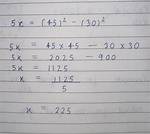 5x = (45)² - (30)²
5x = 45 x 45 - 30 x 30
5x = 2025 - 900
5x = 1125
x = 1125
5
x = 225